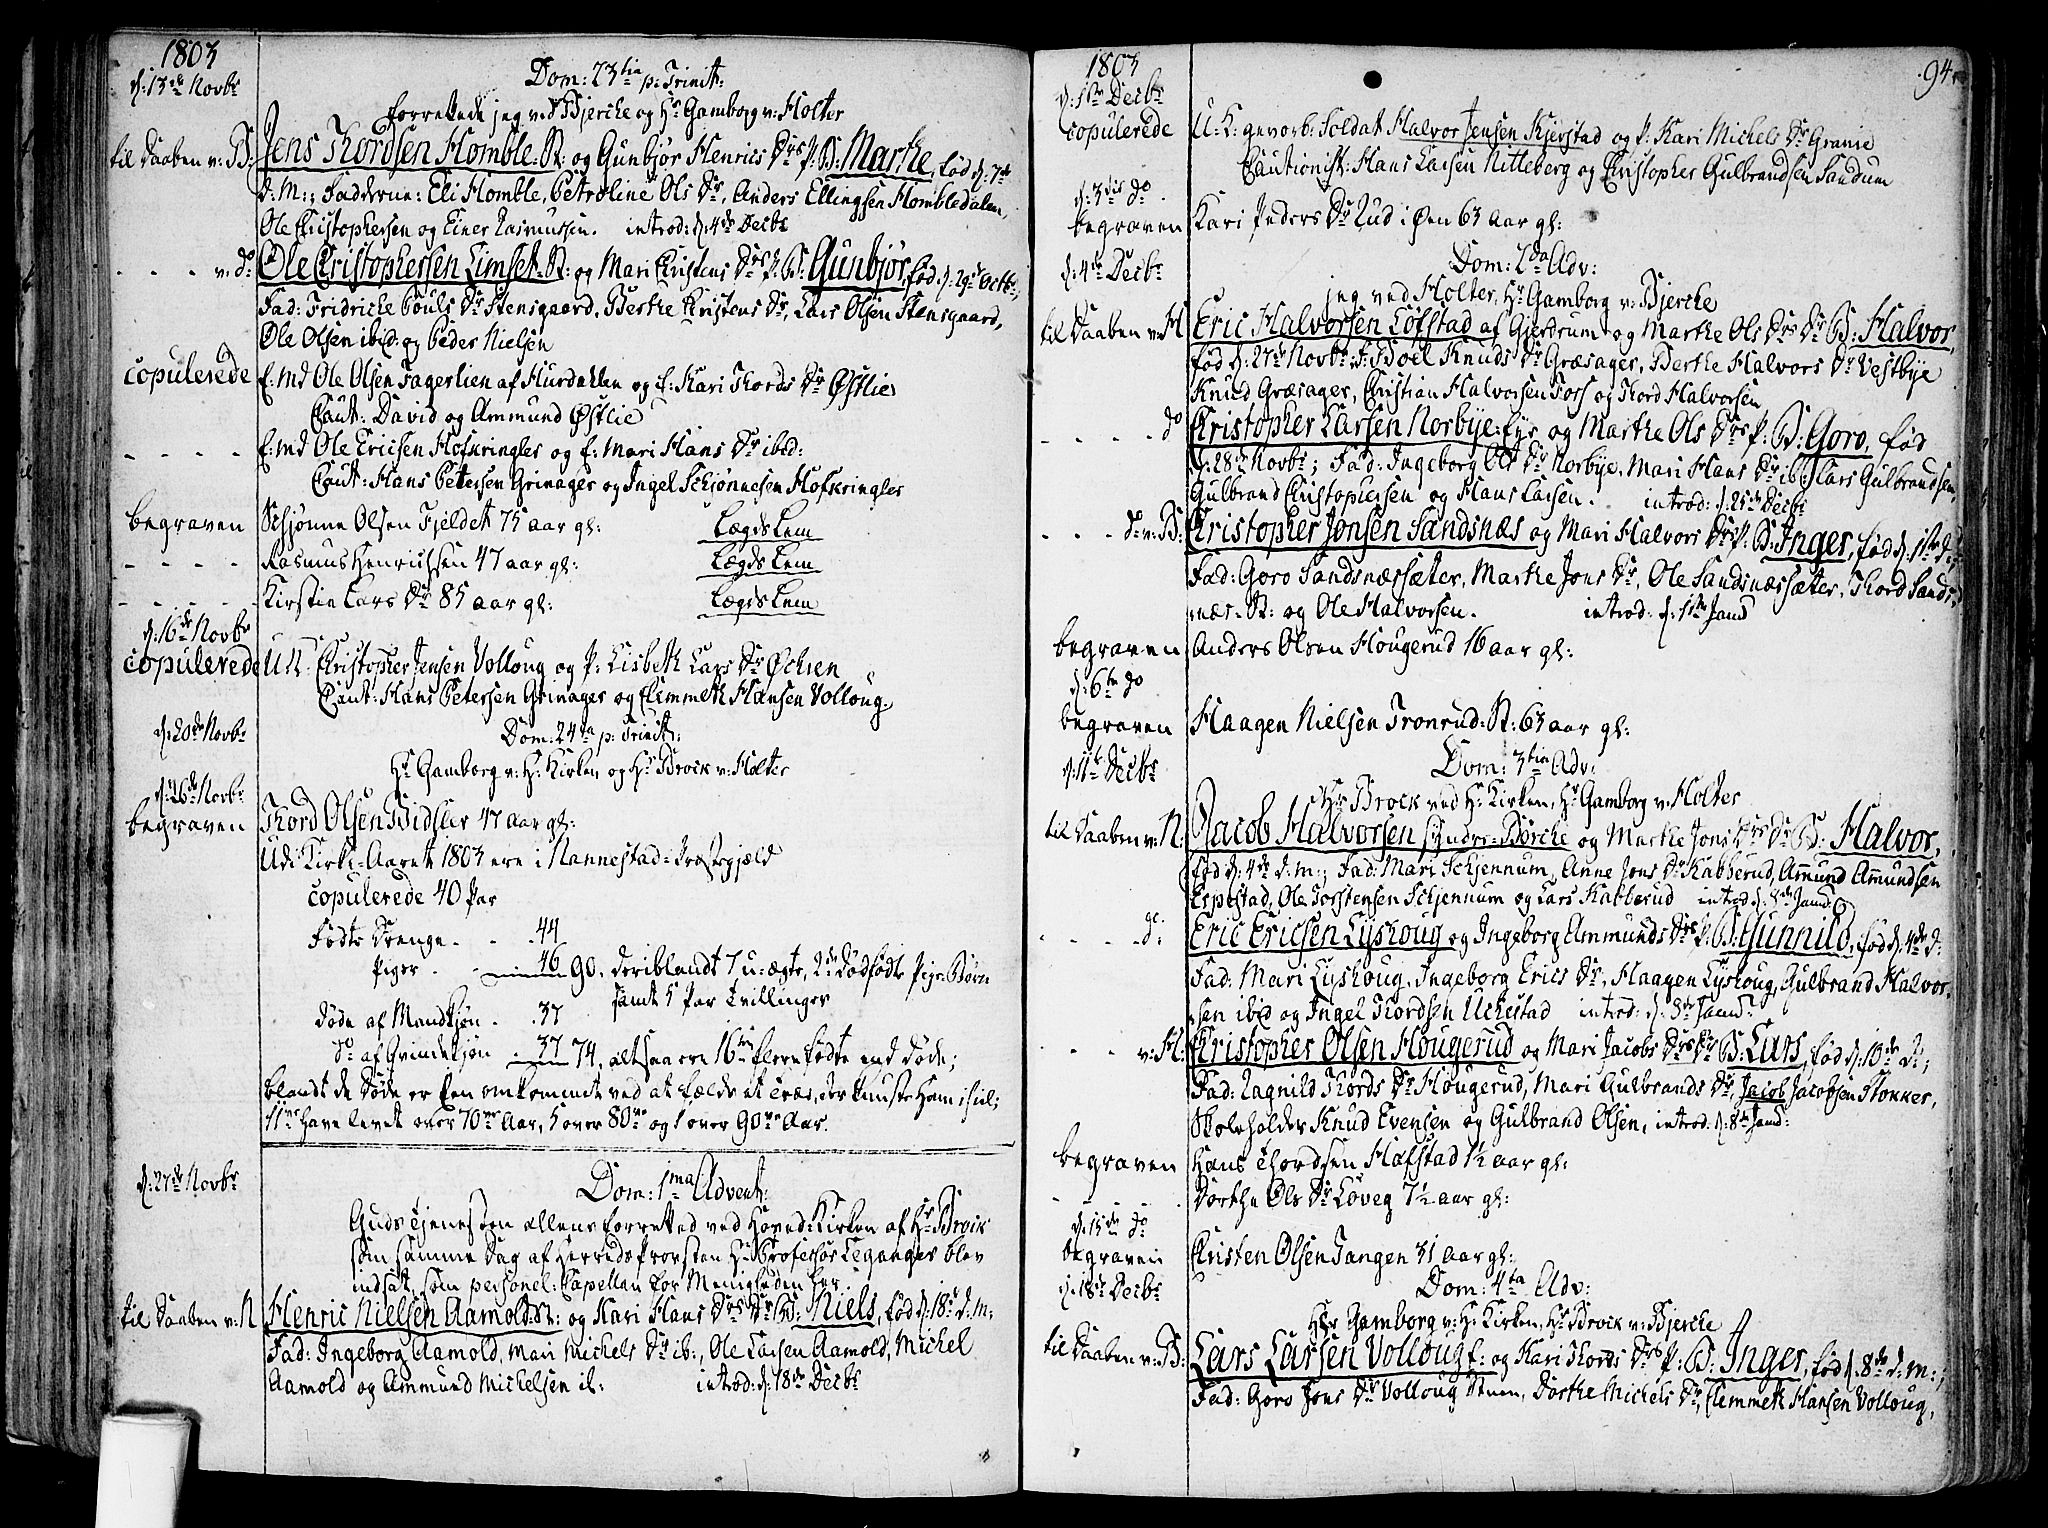 1803
d: 13de Novbr
Dom: 23tia p: Trinit:
forrettede jeg ved Bjercke og Hr Gamborg v: Holter
til Daaben v: B: Jens Thordsen Homble. St: og Gunbjør Henrics Drs P: B: Marthe, fød d: 7de
d: M:; Fadderne: Eli Homble, Petroline Ols Dr, Anders Ellingsen Hombledalen,
Ole Christophersen og Einer Rasmussen. introd: d: 4de Decbr
- - - v: do Ole Christophersen Limset. St: og Mari Christens Drs P: B: Gunbjør, fød d: 29de Octbr;
Fad: Fridricke Pouls Dr Stensgaard, Berthe Christens Dr, Lars Olsen Stensgaard,
Ole Olsen ibid: og Peder Nielsen
copulerede E: Md Ole Olsen Fagerlien af Hurdahlen og E: Kari Thords Dr Østlie
Caut: David og Ammund Østlie
- - - - E: md Ole Ericsen Hofkringler og E: Mari Hans Dr ibid:
Caut: Hans Petersen Grinager og Ingel Schjønnesen Hofkringler
begraven Schjønne Olsen Fjeldet 75 aar gl: Lægds Lem
- - - - Rasmus Henrichsen 47 aar gl: Lægds Lem
- - - - Kirstin Lars Dr 85 aar gl: Lægds Lem
d: 16de Novbr
copulerede U: K: Christopher Jensen Volloug og P: Lisbeth Lars Dr Ochsen
Caut: Hans Petersen Grinager og Clemmeth Hansen Volloug.
d: 20de Novbr
Dom: 24ta p: Trinit:
Hr Gamborg v: H: Kirken, og Hr Brock v: Holter
d: 26de Novbr
begraven Thord Olsen Bidsler 47 aar gl:
Udi Kirke-Aaret 1803 ere i Nannestad-Præstegjæld
copulerede 40 Par
Fødte Drenge - - 44
Piger - - 46 90, deriblandt 7 u-ægte, 2de dødfødte Pige-Børn
samt 5 Par Tvillinger
Døde af Mandkjøn - 37
do af Qvindekjøn - 37 74, altsaa ere 16ten flere fødte end døde;
blandt de Døde er Een omkommet ved at fælde et Træ,
11ve have levet over 70ve Aar, 5 over 80ve og 1 over 90ve Aar.
d: 27de Novbr
Dom: 1ma Advent:
Guds Tjenesten allene forretted ved Hoved-Kirken af Hr Brock
som samme Dag af Herreds Provsten Hr Professor Leganger blev
indsat, som personel Capellan for Menigheden her.
til Daaben v: N Henric Nielsen Aamold. St: og Kari Hans Drs B: Niels, fød d: 18de d: M:
Fad: Ingeborg Aamold, Mari Michels Dr ib:, Ole Larsen Aamold, Michel
Aamold og Ammund Michelsen ib: introd: d: 18de Decbr
94
1803
d: 1ste Decbr
copulerede U: K: gevorb: Soldat Halvor Jensen Kjerstad og P: Kari Michels Dr Granie
Cautionist: Hans Larsen Nitteberg og Christopher Gulbrandsen Sandum
d: 3die do
begraven Kari Peders Dr Rud i Øen 63 aar gl:
d: 4de Decbr
Dom: 2da Adv:
jeg ved Holter, Hr Gamborg v: Bjercke
til Daaben v: H Eric Halvorsen Løfstad af Gjerdrum og Marthe Ols Drs B: Halvor,
fød d: 27de Novbr: F: Boel Knuds Dr Græsager, Berthe Halvors Dr Vestbye
Knud Græsager, Christian Halvorsen Fors og Thord Halvorsen
- - - - do Christopher Larsen Norbye: Eyr og Marthe Ols Drs P: B: Goro, fød
d: 28de Novbr; Fad: Ingeborg Ols Dr Norbye, Mari Hans Dr ib: Lars Gulbrandsen,
Gulbrand Christophersen og Hans Larsen. introd: d: 25de Decbr
- - - do v: B: Christopher Jonsen Sandsnæs og Mari Halvors Drs P: B: Inger, fød d: 1ste d:;
Fad: Goro Sandsnæssæter, Marthe Jons Dr, Ole Sandsnæssæter, Thord Sands-
næs. St: og Ole Halvorsen. introd: d: 1ste Janr
begraven Anders Olsen Hougerud 16 aar gl:
d: 6te do
begraven Haagen Nielsen Tronrud. St: 63 aar gl:
d: 11te Decbr
Dom: 3tia Adv:
Hr Brock ved H: Kirken, Hr Gamborg v: Holter
til Daaben v: N: Jacob Halvorsen Søndre-Børche og Marthe Jons Drs B: Halvor,
fød d: 4de d: m:; Fad: Mari Schjennum, Anne Jons Dr Kabberud, Amund Amundsen
Erpestad, Ole Torstensen Schjennum og Lars Kabberud introd: Janr
- - - - do Eric Ericsen Lyshoug og Ingeborg Ammunds Drs P: B: Gunnild, fød d: 4de d:
Fad: Mari Lyshoug, Ingeborg Erics Dr, Haagen Lyshoug, Gulbrand Halvor-
sen ibid og Ingel Thordsen Uckestad introd: d: 8de Janr
- - - v: H: Christopher Olsen Hougerud og Mari Jacobs Drs B: Lars, fød d: 10de d:;
Fad: Ragnild Thords Dr Hougerud, Mari Gulbrands Dr, Jacob Jacobsen Stokker,
Skoleholder Knud Evensen og Gulbrand Olsen, introd: d: 8de Janr:
begraven Hans Thordsen Hafstad 1½ aar gl:
- - - - Dorthe Ols Dr Løveg 7½ aar gl:
d: 15de do
begraven Christen Olsen Tangen 31 aar gl:
d: 18de Decbr
Dom: 4ta Adv:
Hr Gamborg v: H: Kirken, Hr Brock v: Bjercke
til Daaben v: B: Lars Larsen Volloug E: og Kari Thords Drs P: B: Inger, fød d: 8de d: m:;
Fad: Goro Jens Dr Volloug Stuen, Dorthe Michels Dr, Clemmeth Hansen Volloug,